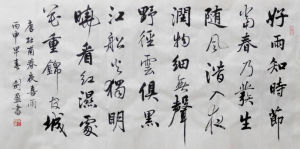 好雨知時節
當春乃發生
隨風潛入夜
潤物細無聲
野徑雲俱黑
江船火獨明
曉看紅濕處
花重錦官城
唐杜甫春夜喜雨
丙申 書